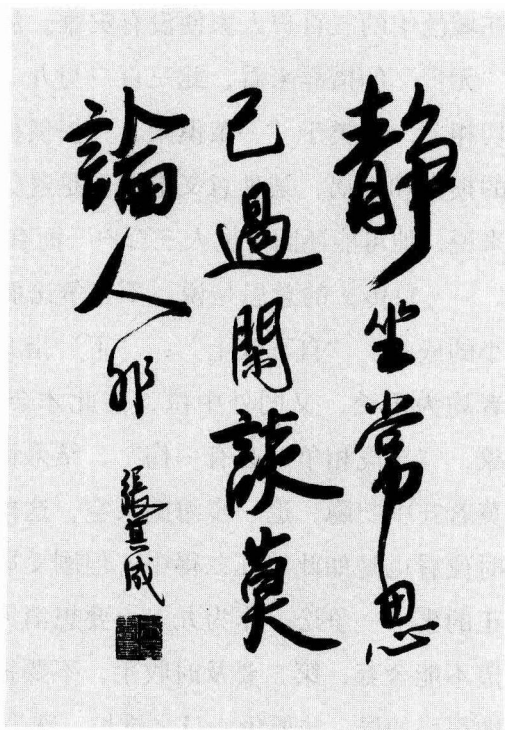 静坐常思
己過閑談莫
論人非
張其成